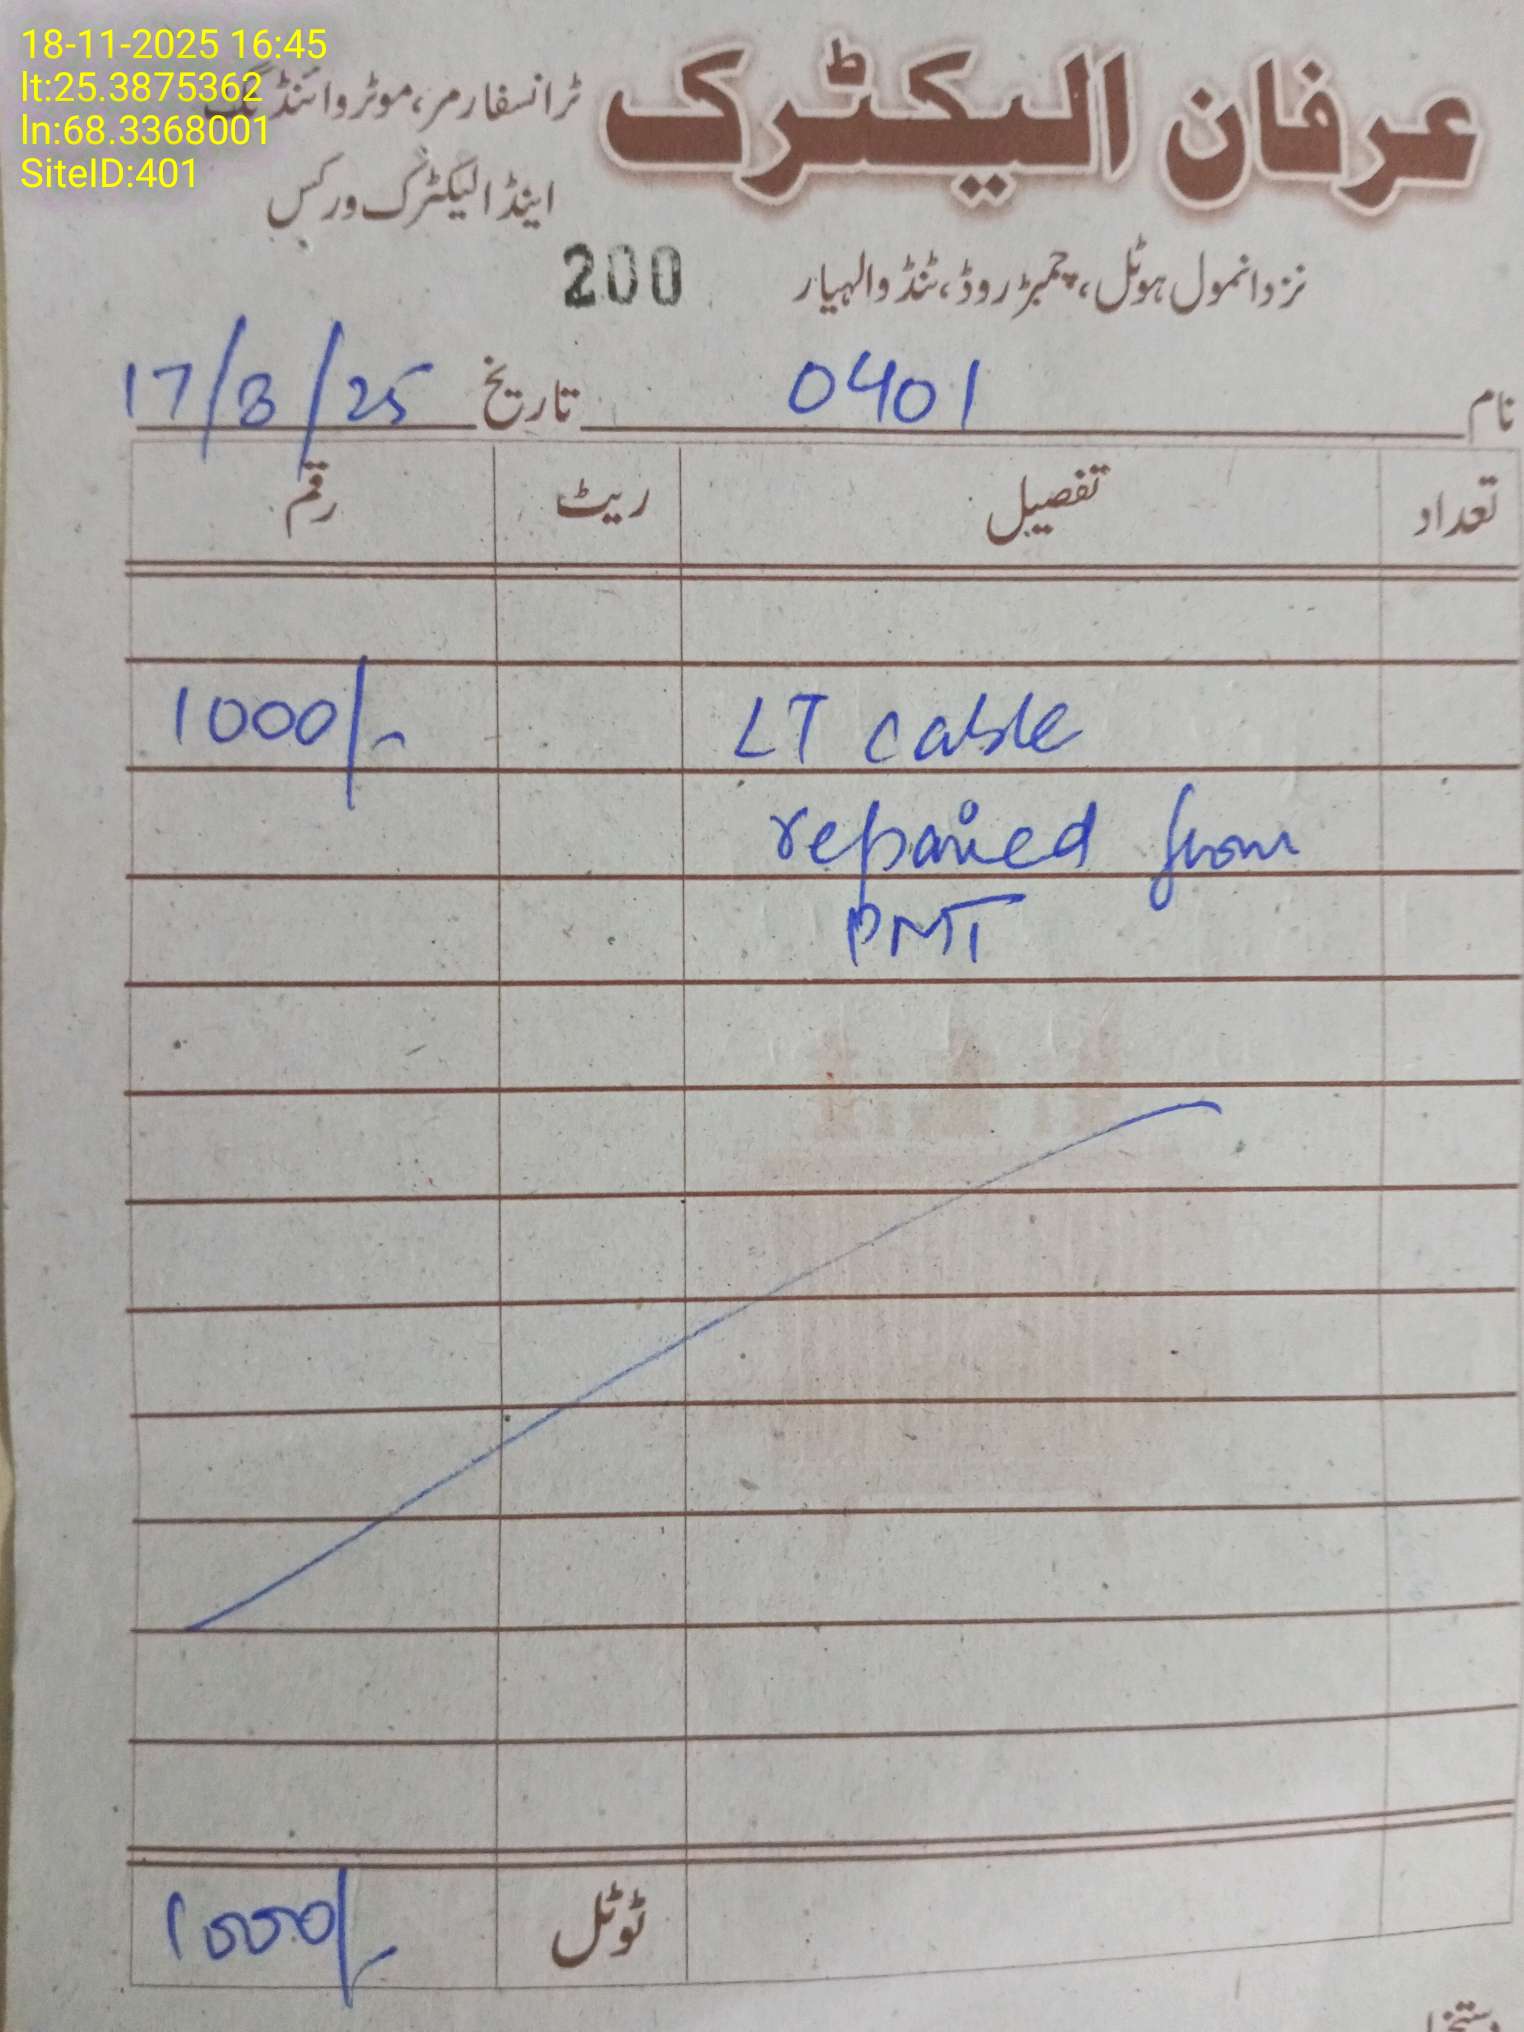 18-11-2025 16:45
lt:25.3875362
ln:68.3368001
SiteID:401
عرفان الیکٹرک
ٹرانسفارمر، موٹر وائنڈنگ
اینڈ الیکٹرک ورکس
نزد انمول ہوٹل، چمبڑ روڈ، ٹنڈوالہیار
200
نام 0401 تاریخ 17/8/25
تعداد تفصیل ریٹ رقم
LT cable 1000/-
repaired from
PMT
ٹوٹل 1000/-